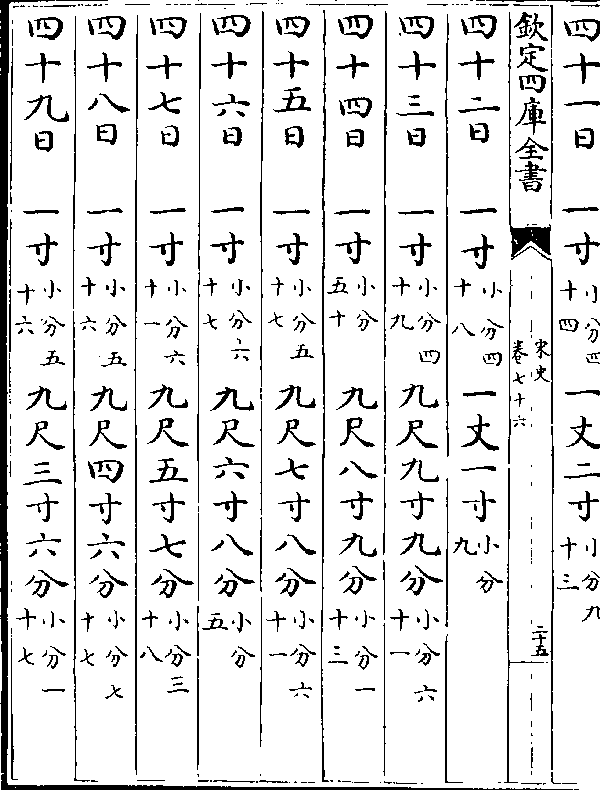 四十一日 一寸 小分四十四 一丈二寸 小分九十三
欽定四庫全書 宋史 卷七十六 二十五
四十二日 一寸 小分四十八 一丈一寸 小分九
四十三日 一寸 小分四十九 九尺九寸九分 小分六十一
四十四日 一寸 小分五十 九尺八寸九分 小分一十三
四十五日 一寸 小分五十七 九尺七寸八分 小分六十一
四十六日 一寸 小分六十七 九尺六寸八分 小分五
四十七日 一寸 小分六十一 九尺五寸七分 小分三十八
四十八日 一寸 小分五十六 九尺四寸六分 小分七十七
四十九日 一寸 小分五十六 九尺三寸六分 小分一十七